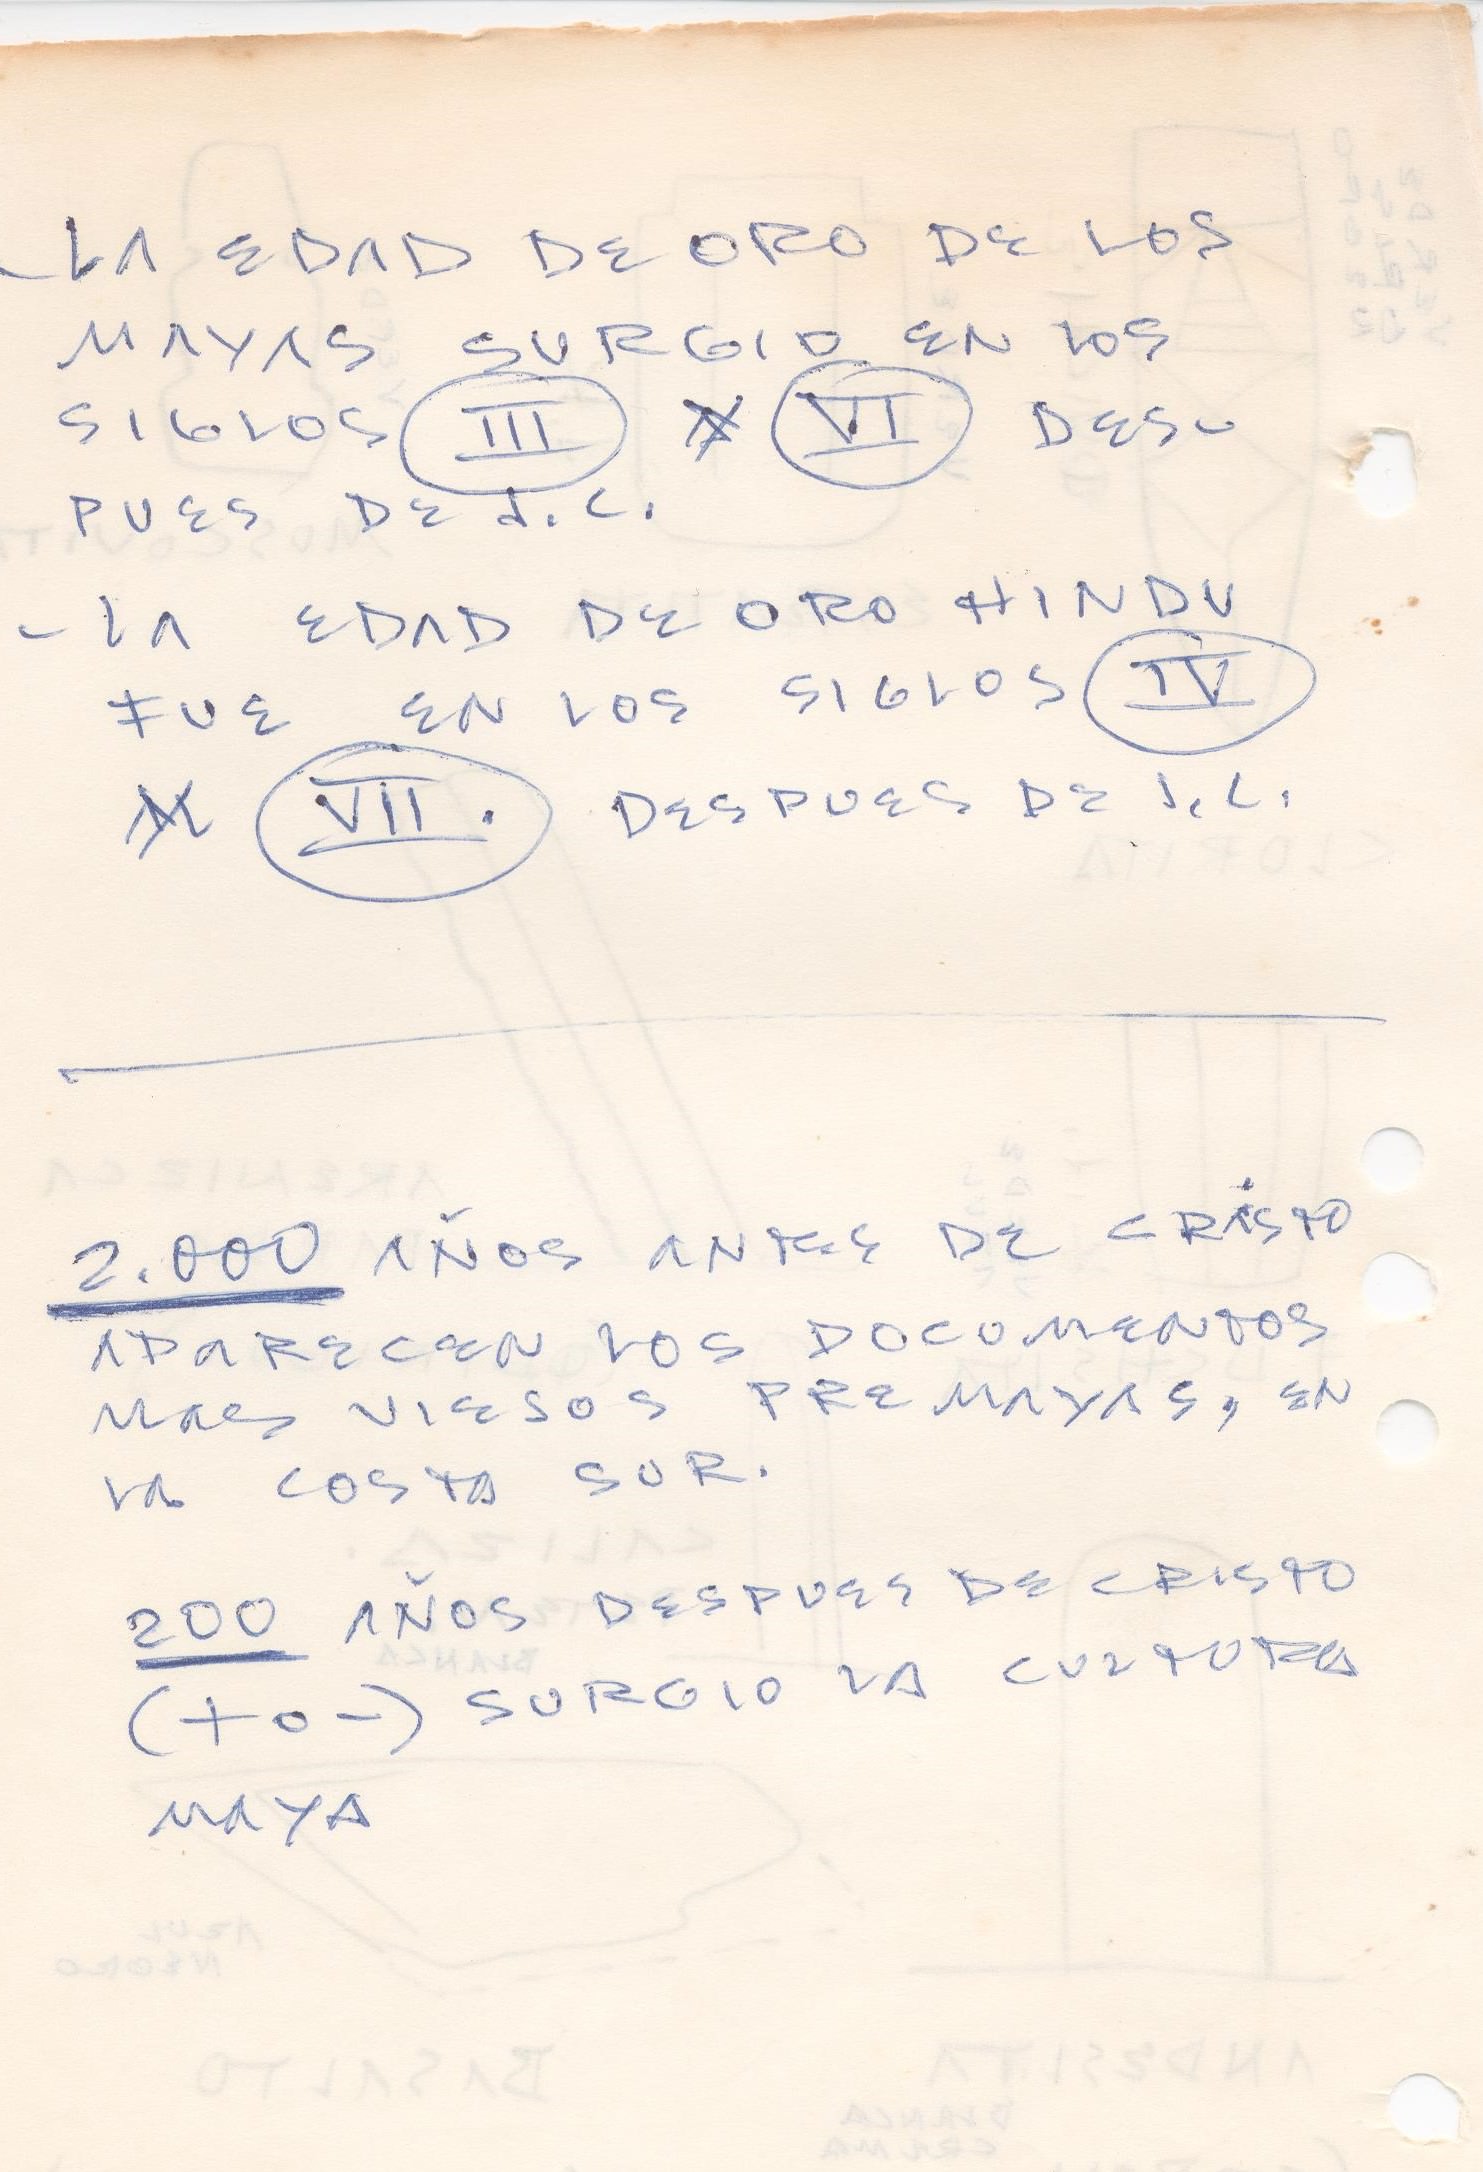 - LA EDAD DE ORO DE LOS
MAYAS SURGIO EN LOS
SIGLOS III VI DESU
PUES DE J.C.
- LA EDAD DE ORO HINDU
FUE EN LOS SIGLOS IV
VII. DESPUES DE J.C.
2.000 AÑOS ANTES DE CRISTO
APARECEN LOS DOCUMENTOS
MAS VIEJOS PREMAYAS, EN
LA COSTA SUR.
200 AÑOS DESPUES DE CRISTO
(+ o -) SURGIO LA CULTURA
MAYA
MOSCOVITA
CLORITA
ARENIZCA
CALIZA.
BLANCA
AZUL
NEGRO
BASALTO
ANDESITA
BLANCA
CREMA